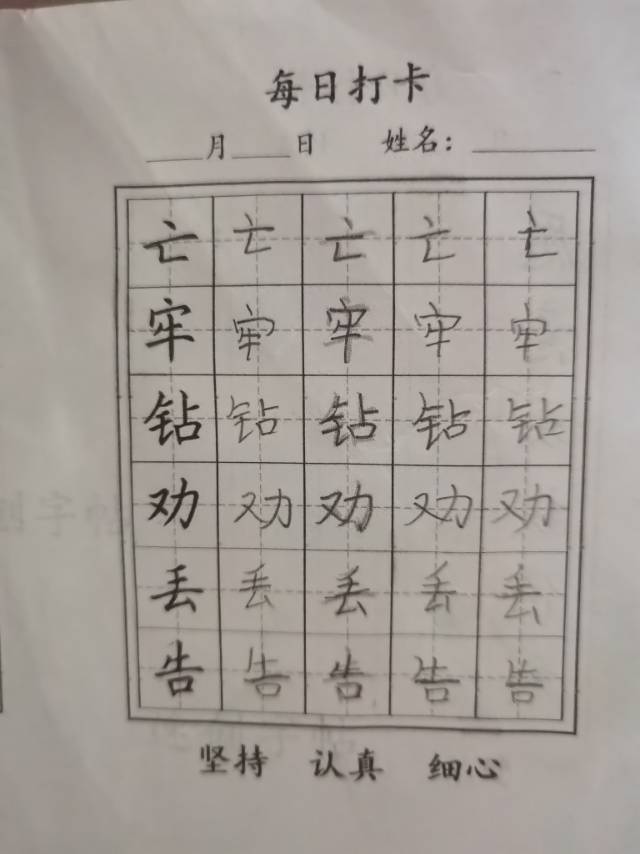 每日打卡
月 日 姓名：
亡 亡 亡 亡 亡
牢 牢 牢 牢 牢
钻 钻 钻 钻 钻
劝 劝 劝 劝 劝
丢 丢 丢 丢 丢
告 告 告 告 告
坚持 认真 细心